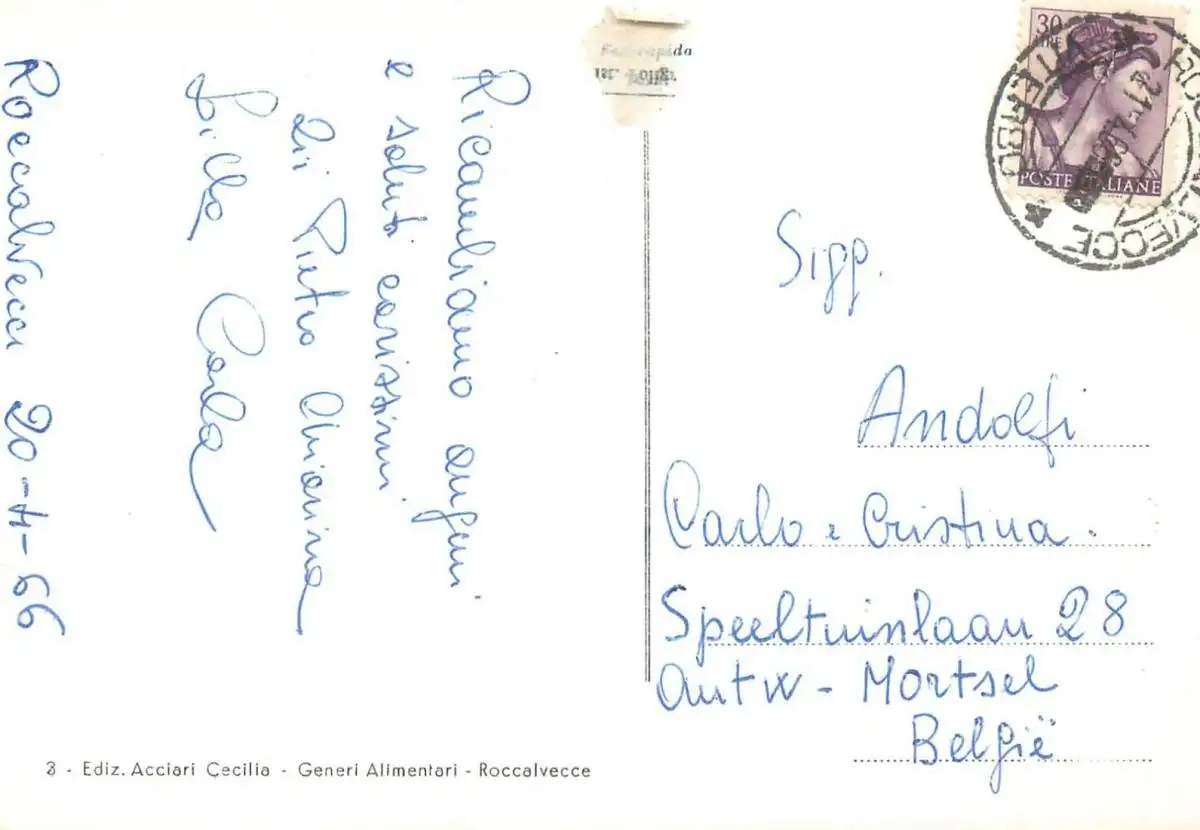 Ricambiamo auguri
e saluti carissimi
zii Pietro Chiarina
Lilla Carla
Roccalvecce 20-4-66
30
LIRE
POSTE ITALIANE
VITERBO
Sigg.
Andolfi
Carlo e Cristina.
Speeltuinlaan 28
Antw - Mortsel
België
3 - Ediz. Acciari Cecilia - Generi Alimentari - Roccalvecce